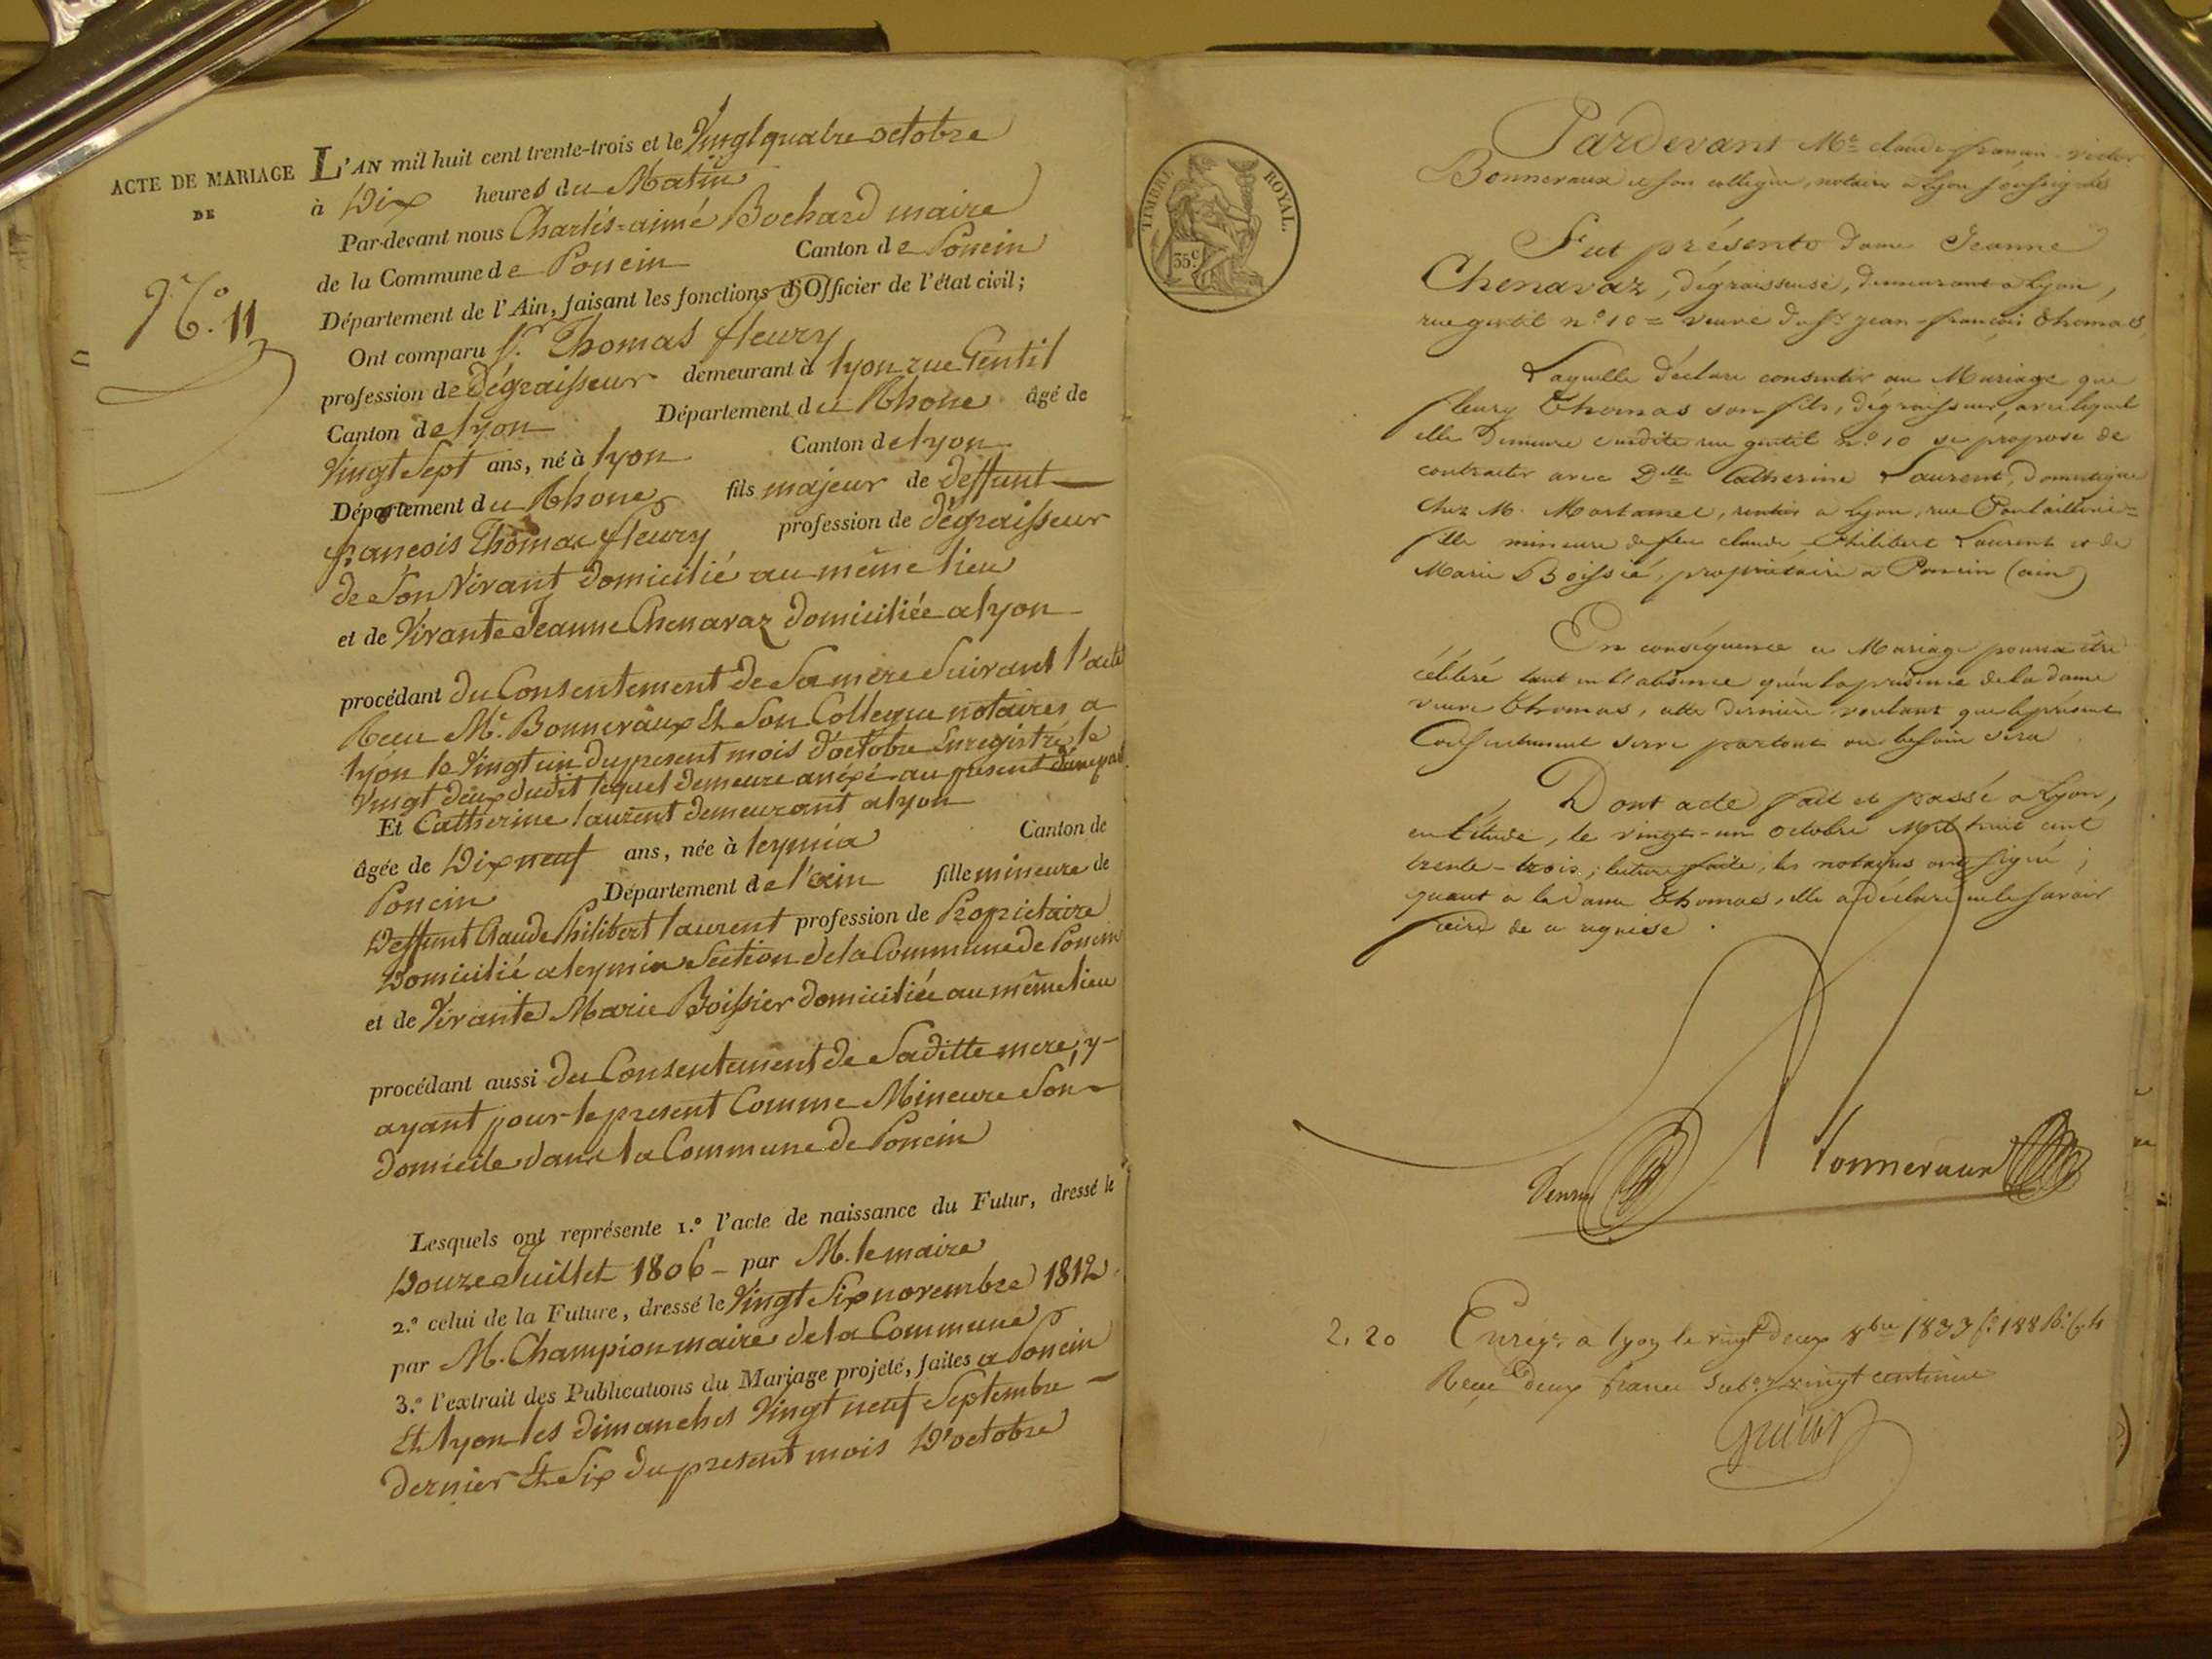 ACTE DE MARIAGE
DE
N.º 11
L'AN mil huit cent trente-trois et le Vingt quatre octobre
à Dix heures du Matin
Par-devant nous Charles-aimé Bochard maire
de la Commune de Poncin Canton de Poncin
Département de l'Ain, faisant les fonctions d'Officier de l'état civil;
Ont comparu Sr. Thomas fleury
profession de Dégraisseur demeurant à lyon rue Gentil
Canton de lyon Département du Rhone âgé de
Vingt Sept ans, né à lyon Canton de lyon
Département du Rhone fils majeur de Deffunt
françois Thomas fleury profession de dégraisseur
de Son Vivant domicilié au même lieu
et de Vivante Jeanne Chenavaz domiciliée a lyon
procédant du Consentement de Sa mere Suivant l'acte
Recu Me. Bonnevaux Et Son Collegue notaires a
lyon le Vingt un du present mois d'octobre Enregistré le
Vingt deux dudit lequel demeure anéxé au present d'une part
Et Catherine laurent demeurant a lyon
âgée de Dix neuf ans, née à leymia Canton de
Poncin Département de l'ain fille mineure de
Deffunt Claude Philibert laurent profession de Propriétaire
Domicilié a leymia Section de la Commune de Poncin
et de Vivante Marie Boissier domiciliée au même lieu
procédant aussi du Consentement de Saditte mere, y
ayant pour le present Comme Mineure Son
domicile dans la Commune de Poncin
Lesquels ont représente 1.º l'acte de naissance du Futur, dressé le
Douze Juillet 1806 par M. le maire
2.º celui de la Future, dressé le Vingt Six novembre 1812
par M. Champion maire de la Commune
3.º l'extrait des Publications du Mariage projeté, faites a Poncin
Et lyon les dimanches Vingt neuf Septembre
dernier Et Six du present mois D'octobre
TIMBRE ROYAL.
35c
Pardevant Me claude françois victor
Bonnevaux et son collègue, notaires à Lyon soussignés
Fut présente dame Jeanne
Chenavaz, dégraisseuse, demeurant à Lyon,
rue gentil nº 10 = veuve du Sr jean-françois Thomas
Laquelle déclare consentir au Mariage que
fleury Thomas son fils, dégraisseur, avec lequel
elle demeure susdite rue gentil nº 10 se propose de
contracter avec Dlle Catherine Laurent, domestique
chez M. Mortamet, rentier à Lyon, rue Poulaillerie =
fille mineure de feu claude Philibert Laurent et de
Marie Boissié, propriétaire à Poncin (ain)
En conséquence ce Mariage pourra être
célébré tant en l'absence qu'en la présence de la dame
veuve Thomas, cette dernière voulant que le présent
Consentement serve partout où besoin sera
Dont acte fait et passé à Lyon,
en l'étude, le vingt-un octobre Mil huit cent
trente-trois; lecture faite, les notaires ont signé;
quant à la dame Thomas, elle a déclaré ne le savoir
faire de ce requise.
Bonnevaux
2,20 Enregé. à lyon le vingt deux 8bre 1833 fº 188
Reçu deux francs Subon vingt centimes